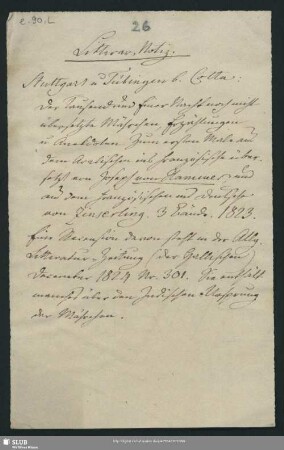 e. 90, L
26
Litterar. Notiz.
Stuttgart u Tübingen b. Cotta:
Der Tausend und Einer Nacht noch nicht
übersetzte Mährchen Erzählungen
u Anekdoten. Zum ersten Male aus
dem Arabischen ins Französische über-
setzt von Joseph von Hammer, und
aus dem Französischen ins Deutsche
von Zinserling. 3 Bände. 1823.
Eine Recension davon steht in der Allg.
Litteratur-Zeitung (der Hallischen)
December 1824 Nr. 301. Sie enthält
manches über den Indischen Ursprung
der Mährchen.
SLUB